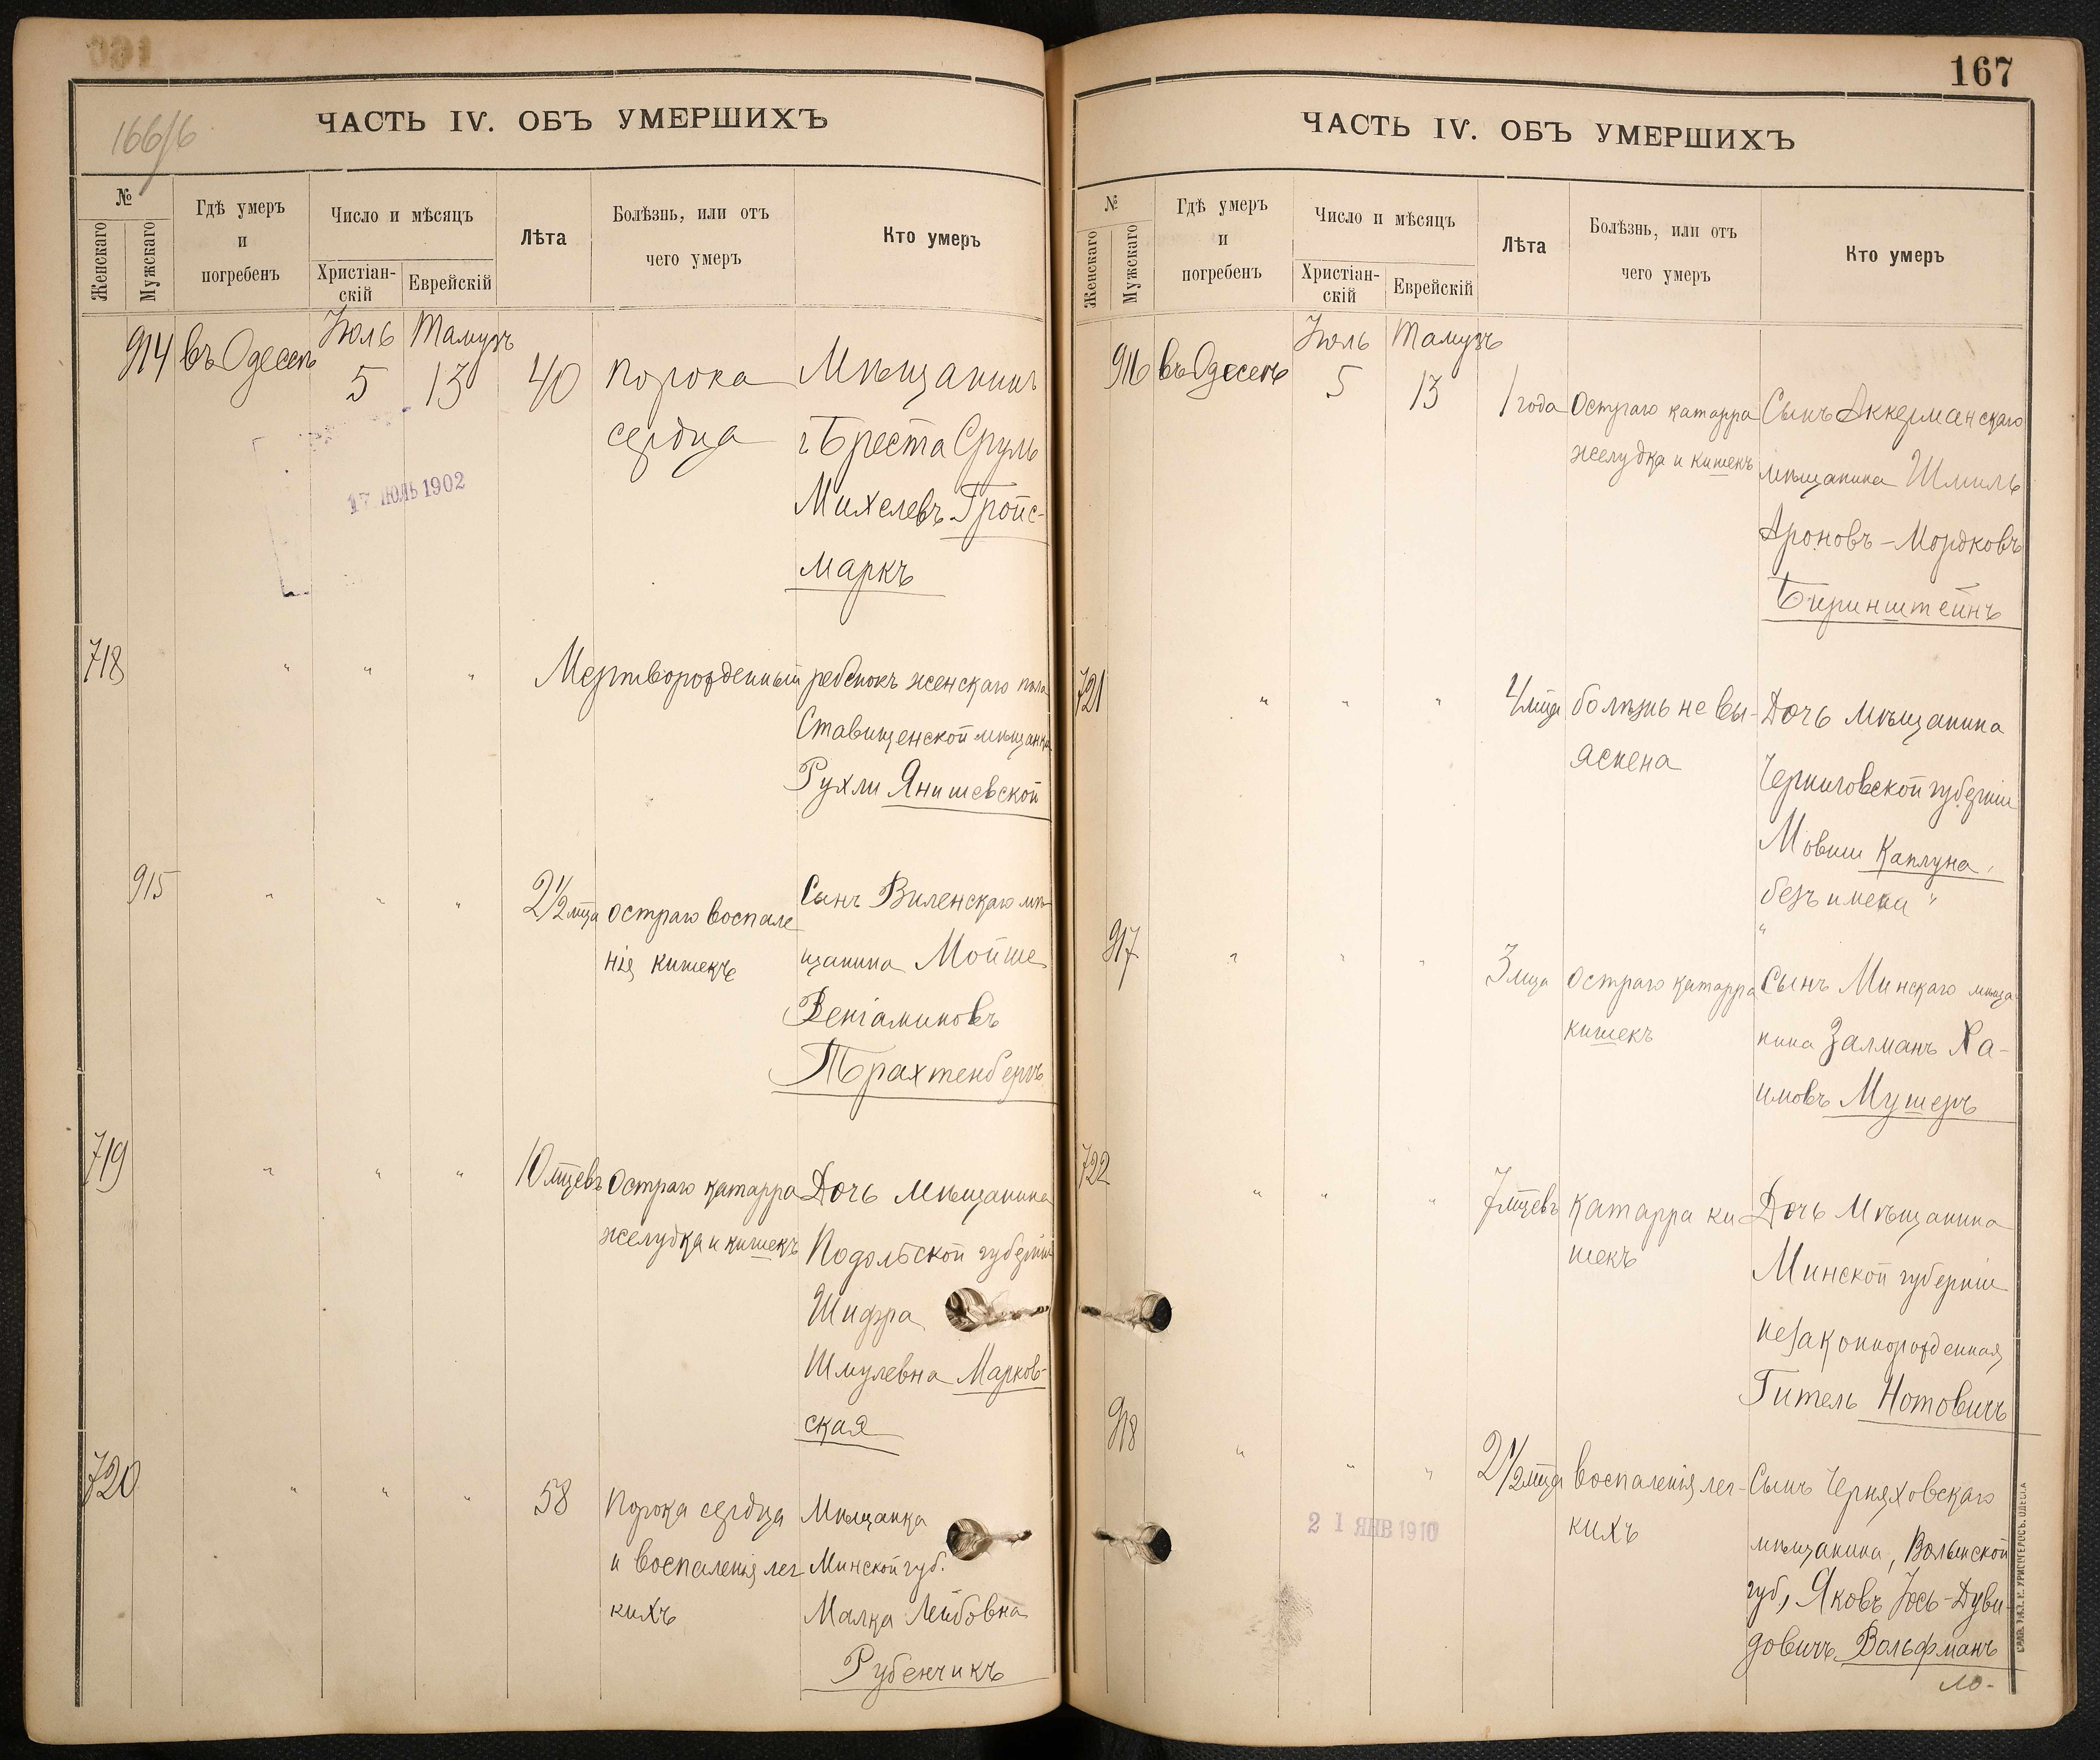 166/б
ЧАСТЬ IV. ОБЪ УМЕРШИХЪ
№
Женскаго
Мужскаго
Гдѣ умеръ
и
погребенъ
Число и мѣсяцъ
Христіан-
скій
Еврейскій
Лѣта
Болѣзнь, или отъ
чего умеръ
Кто умеръ
Іюль Тамузъ
914 въ Одессѣ 5 13 40 порока Мѣщанинъ
сердца г Бреста Сруль
17 ІЮЛЬ 1902
Михелевъ Гройс-
маркъ
718 " " " Мертворожденный ребенокъ женскаго пола
Ставищенской мѣщанки
Рухли Янишевской
915 " " " 2 1/2 мѣца остраго воспале Сынъ Виленскаго мѣ
нія кишекъ щанина Мойше
Веніаминовъ
Трахтенбергъ
719 " " " 10 мѣцевъ остраго катарра Дочь мѣщанина
желудка и кишекъ Подольской губерніи
Шифра
Шмулевна Марков-
ская
720 " " " 58 порока сердца Мѣщанка
и воспаленія лег Минской губ.
кихъ Малка Лейбовна
Рубенчикъ
167
ЧАСТЬ IV. ОБЪ УМЕРШИХЪ
№
Женскаго
Мужскаго
Гдѣ умеръ
и
погребенъ
Число и мѣсяцъ
Христіан-
скій
Еврейскій
Лѣта
Болѣзнь, или отъ
чего умеръ
Кто умеръ
Іюль Тамузъ
916 въ Одессѣ 5 13 1 года остраго катарра Сынъ Аккерманскаго
желудка и кишекъ мѣщанина Шмиль
Ароновъ-Мордковъ
Беринштейнъ
721 " " " 4 мѣца болѣзнь не вы- Дочь мѣщанина
яснена Черниговской губерніи
Мовши Каплуна,
безъ имени "
"
917 " " " 3 мѣца остраго катарра Сынъ Минскаго мѣща
кишекъ нина Залманъ Ха-
имовъ Мушеръ
722 " " " 7 мѣцевъ катарра ки Дочь мѣщанина
шекъ Минской губерніи
незаконнорожденная
Гитель Нотовичъ
918 " " " 2 1/2 мѣца воспаленія лег- Сынъ Черняховскаго
21 ЯНВ 1910
кихъ мѣщанина, Волынской
губ, Яковъ Іось-Дуви-
довичъ Вольфманъ